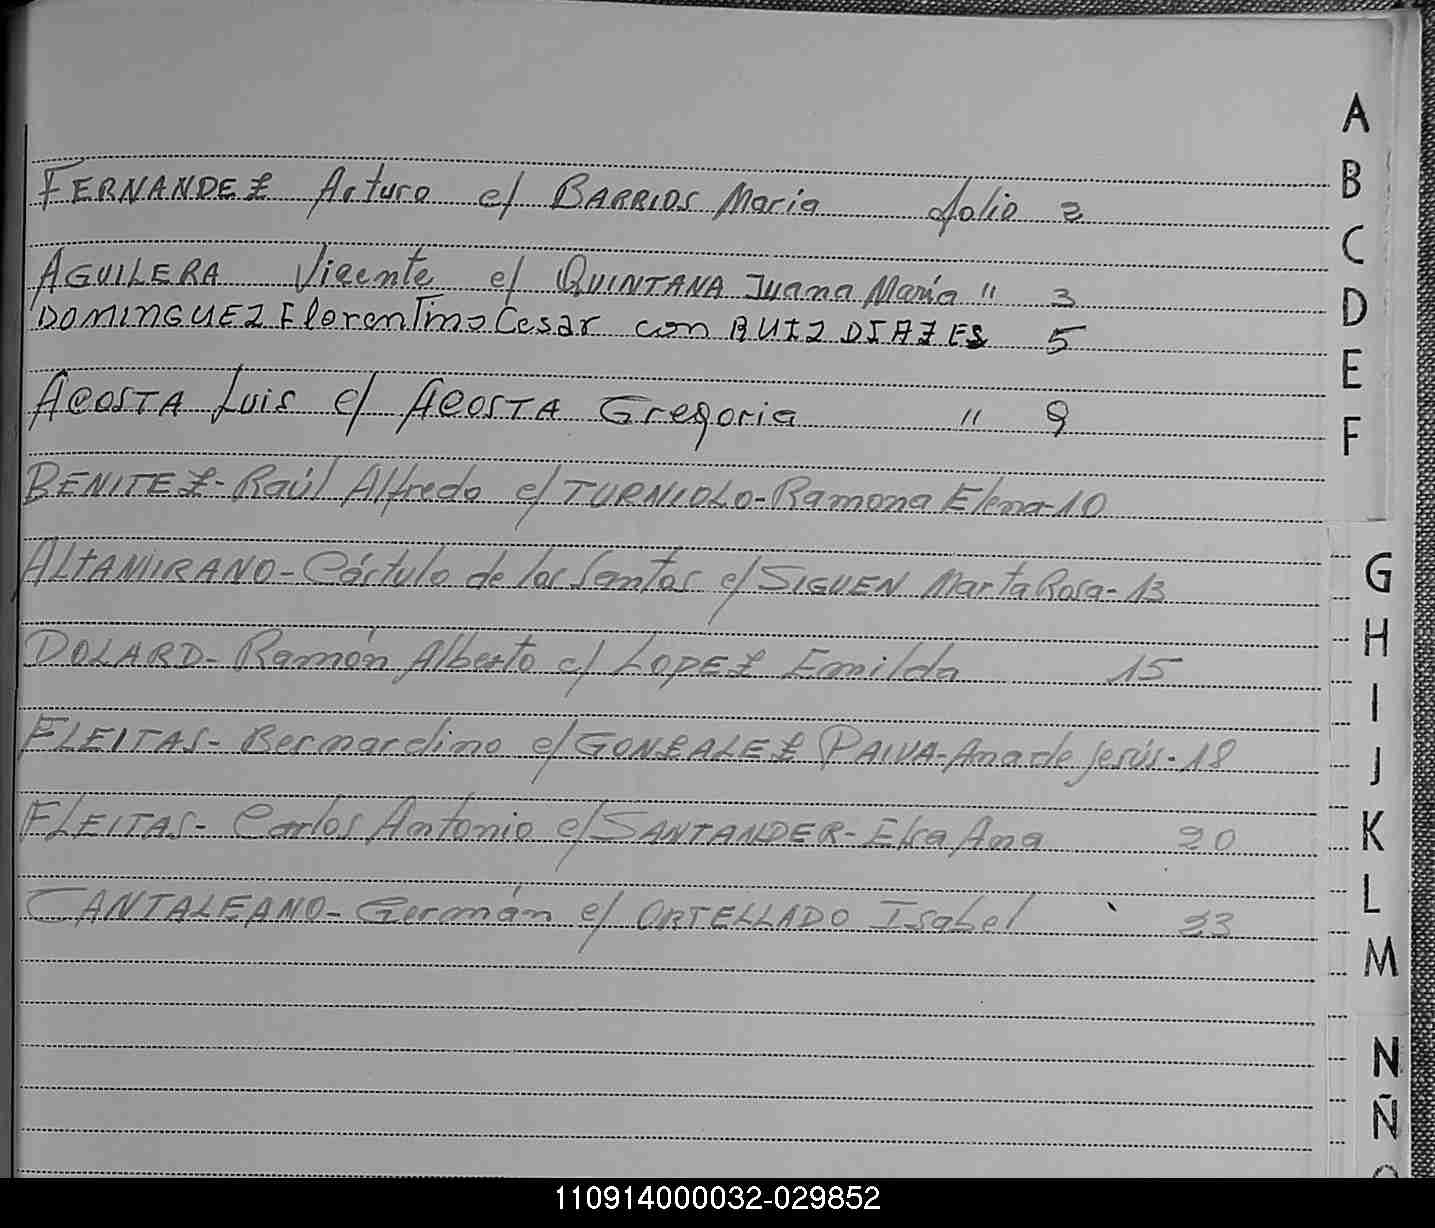 FERNANDEZ Arturo c/ BARRIOS Maria folio 2
AGUILERA Vicente c/ QUINTANA Juana María " 3
DOMINGUEZ Florentino Cesar con RUIZ DIAZ ES 5
ACOSTA Luis c/ ACOSTA Gregoria " 9
BENITEZ- Raúl Alfredo c/ TURNIOLO- Ramona Elena-10
ALTAMIRANO- Cástulo de los Santos c/ SIGUEN Marta Rosa- 13
DOLARD- Ramón Alberto c/ LOPEZ Emilda 15
FLEITAS- Bernardino c/ GONZALEZ PAIVA- Ana de Jesús- 18
FLEITAS- Carlos Antonio c/ SANTANDER- Elsa Ana 20
CANTALEANO- Germán c/ ORTELLADO Isabel 23
A
B
C
D
E
F
G
H
I
J
K
L
M
N
Ñ
110914000032-029852